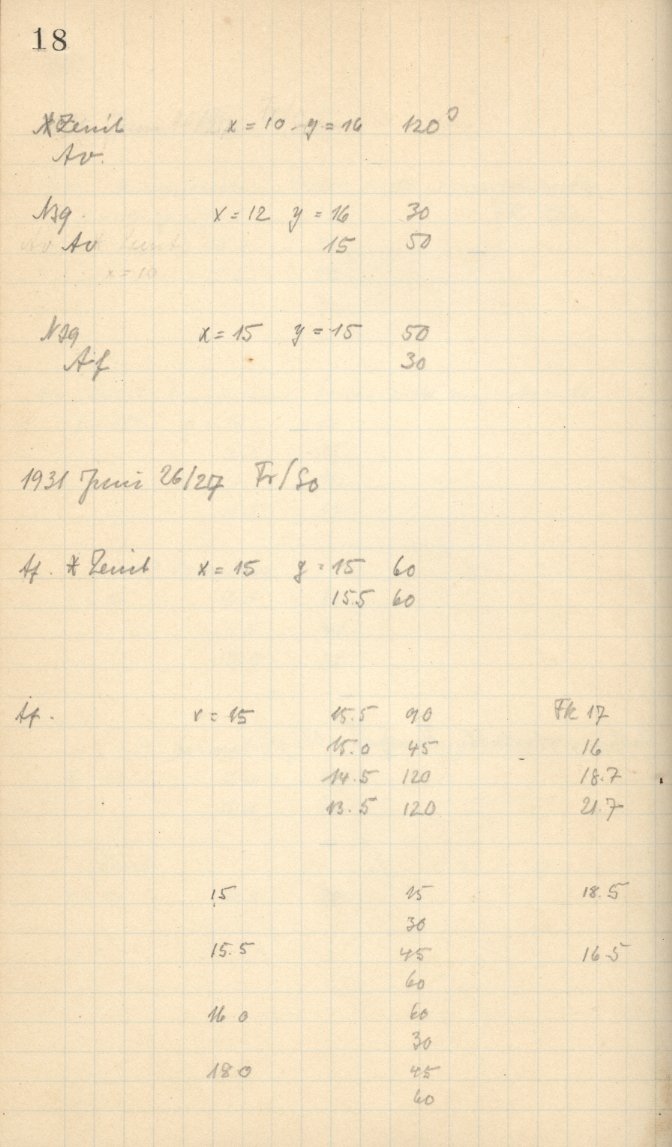 18
* Zenit x = 10 y = 16 120°
Av.
Nsg. x = 12 y = 16 30
Av 15 50
x = 10
Nsg x = 15 y = 15 50
Af 30
1931 Juni 26/27 Fr/So
Af. * Zenit x = 15 y = 15 60
15.5 60
Af. x = 15 15.5 90 Fk 17
15.0 45 16
14.5 120 18.7
13.5 120 21.7
15 15 18.5
30
15.5 45 16.5
60
16 0 60
30
18 0 45
60